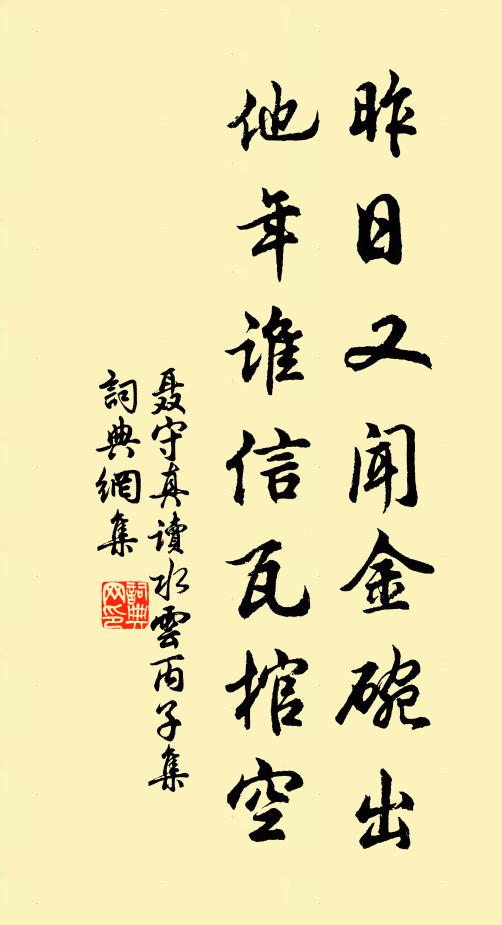 昨日又闻金碗出
他年谁信瓦棺空
聂守真读水雲丙子集
詞典網集
詞典
网印